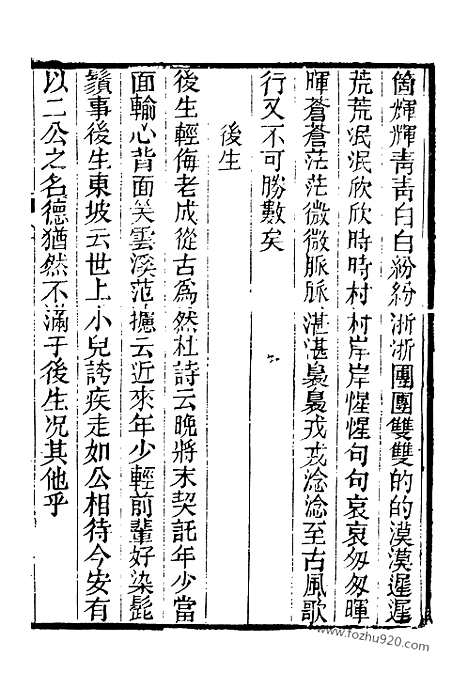 箇輝輝青青白白紛紛浙浙團團雙雙的的漠漠遲遲
荒荒泯泯欣欣時時村村岸岸惺惺句句哀哀匆匆暉
暉蒼蒼茫茫微微脈脈湛湛裊裊戎戎淰淰至古風歌
行又不可勝數矣
後生
後生輕侮老成從古爲然杜詩云晚將末契託年少當
面輸心背面笑雲溪范攄云近來年少輕前輩好染髭
鬚事後生東坡云世上小兒誇疾走如公相待今安有
以二公之名德猶然不滿于後生况其他乎
www.fozhu920.com